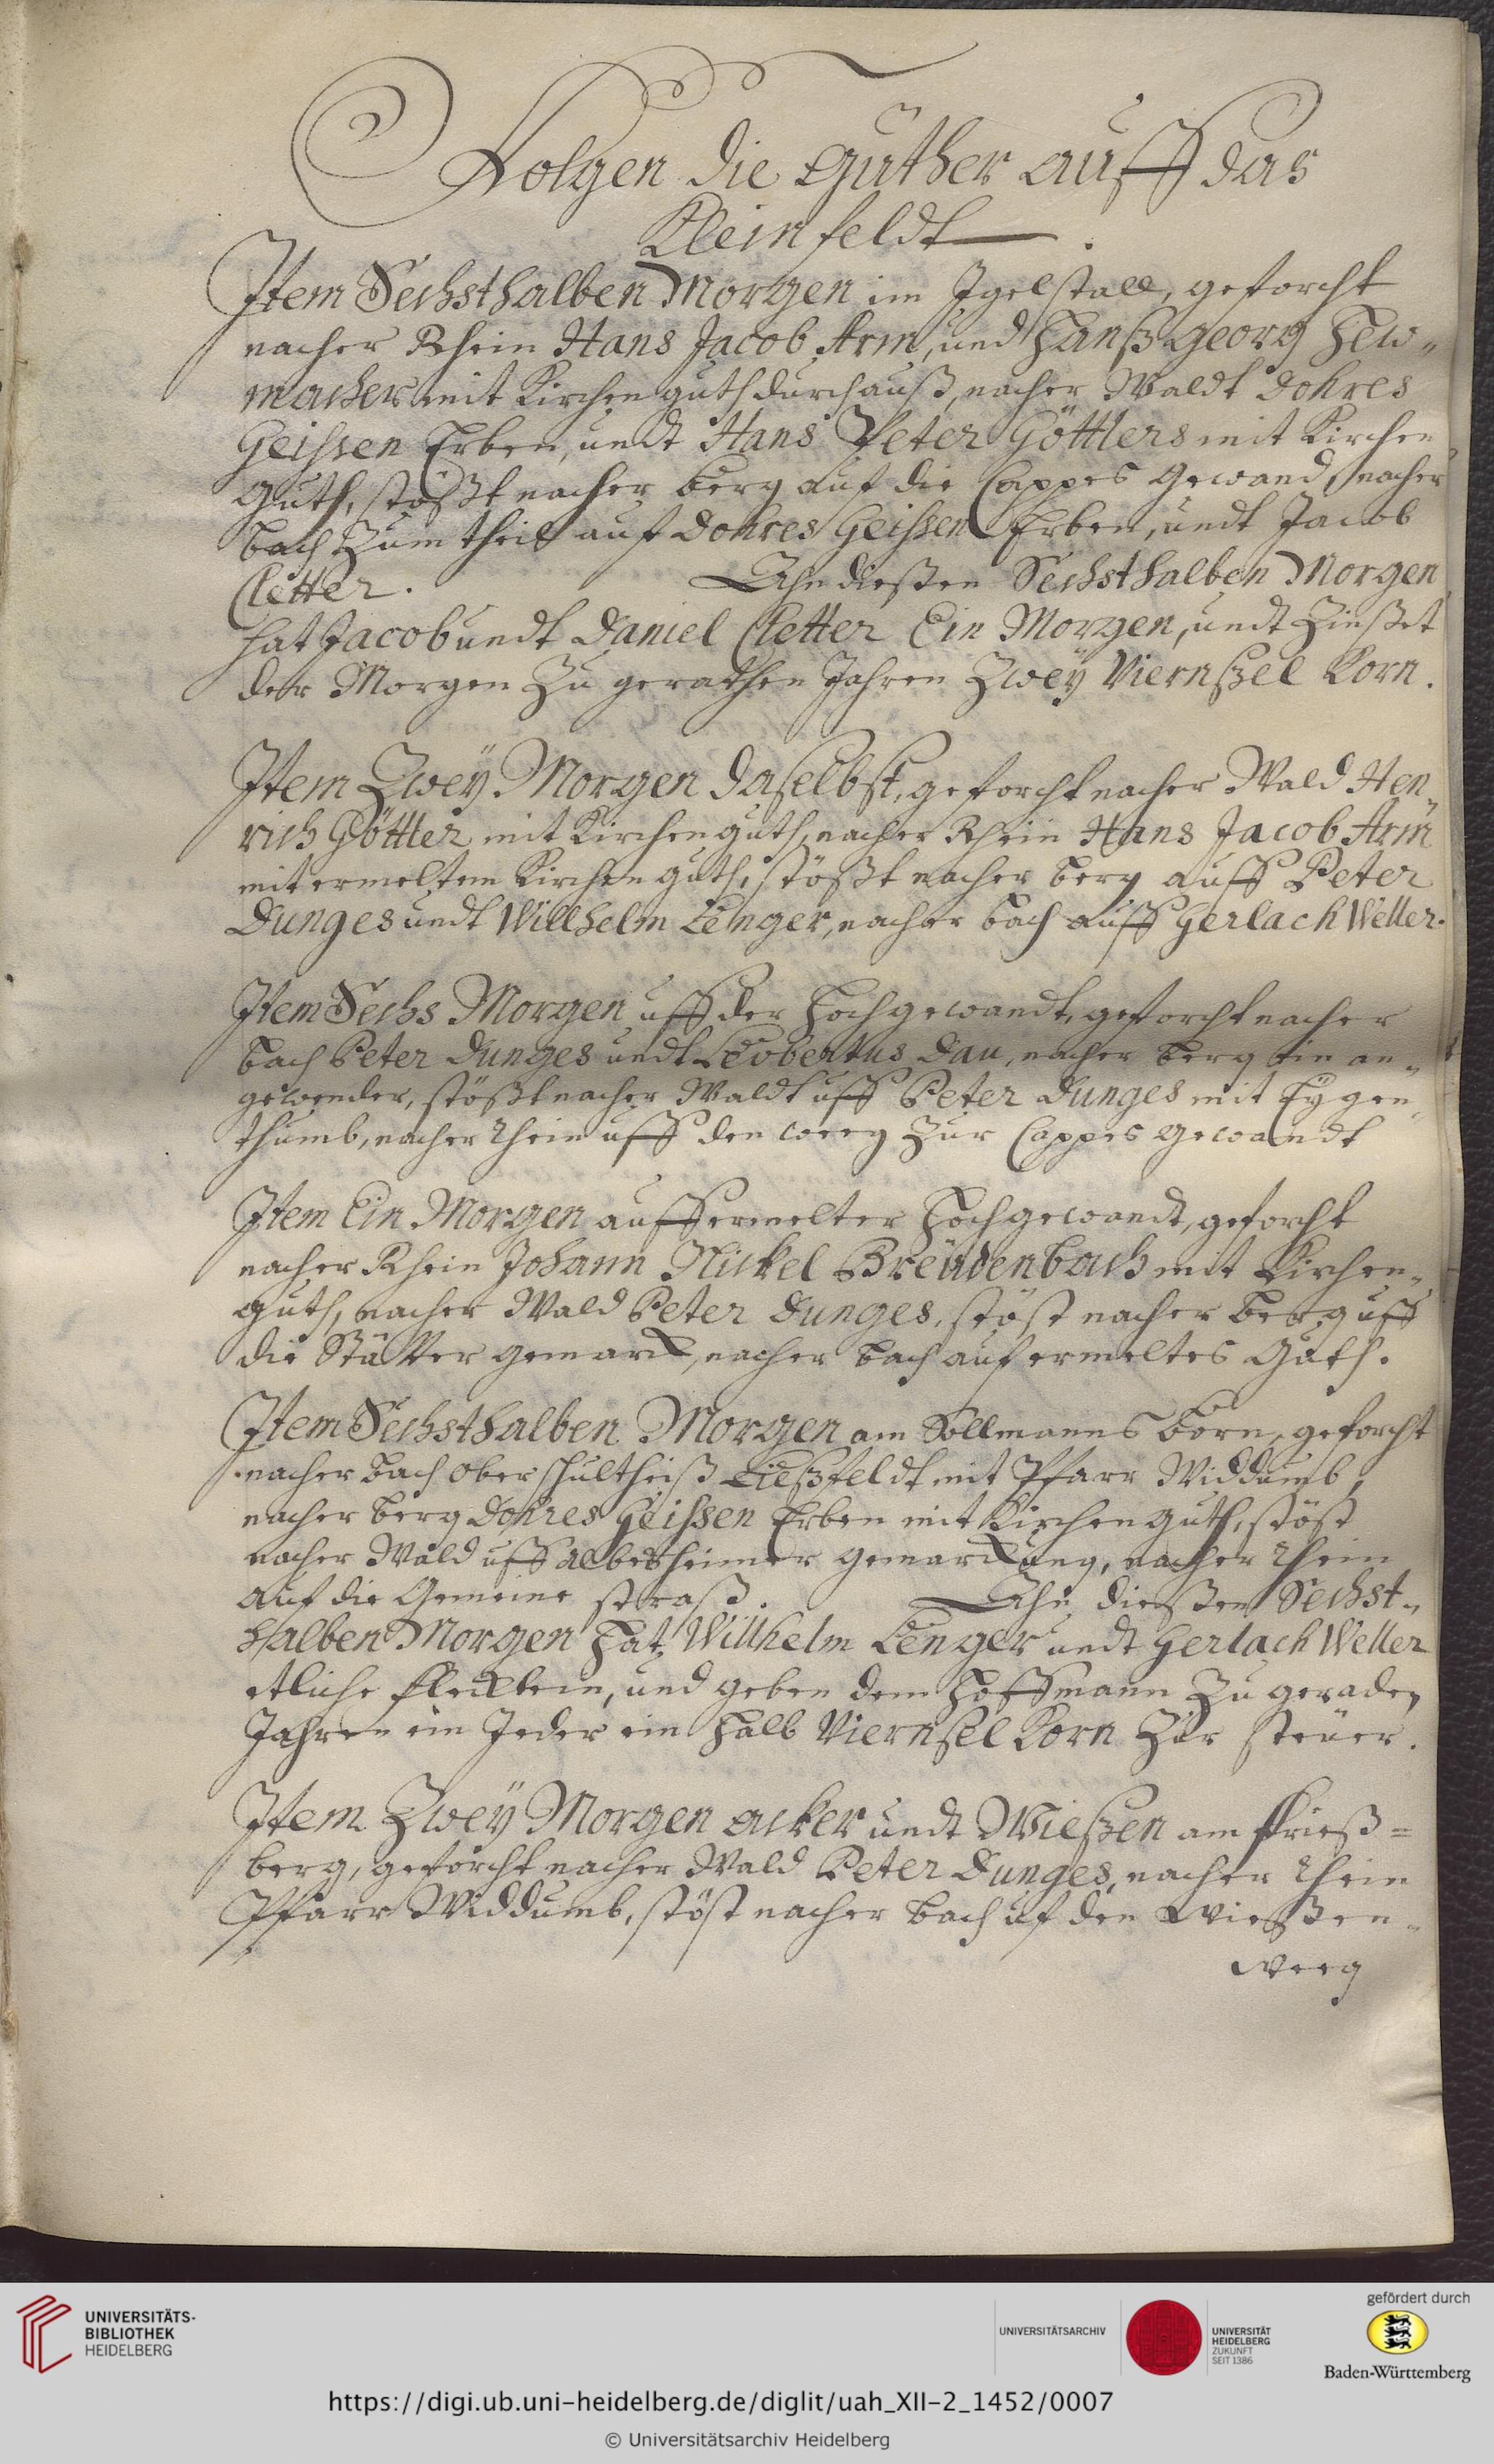 Folgen die Güther auff das
Kleinfeldt.
Item Sechsthalben Morgen im Igelstall, geforcht
nacher Rhein Hans Jacob Arm, und Hanß Georg Hew„
macher mit Kirchen guth durchauß, nacher Waldt Dohres
Geissen Erben, undt Hans Peter Göttlers mit Kirchen
Guth, stößt nacher berg auf die Cappes Gewand, nacher
bach Zum theil auf Dohres Geissen Erben, undt Jacob
Cletter. Ahn dießen Sechsthalben Morgen
hat Jacob undt Daniel Cletter Ein Morgen, undt Zinßet
der Morgen Zu gerathen Jahren Zweÿ Viernßel Korn.
Item Zweÿ Morgen daselbst, geforcht nacher Wald Hen„
rich Göttler mit Kirchen guth, nacher Rhein Hans Jacob Arm
mit ermeltem Kirchen guth, stößt nacher berg auff Peter
Dunges undt Willhelm Lenger, nacher bach auff Gerlach Weller.
Item Sechs Morgen uff der Hochgewandt, geforcht nacher
bach Peter Dunges undt Leobertus Dau, nacher berg ein an„
gewender, stößt nacher Waldt uff Peter Dunges mit Eÿgen„
thumb, nacher Rhein uff den weeg Zur Cappes Gewandt
Item Ein Morgen auff ermelter Hochgewandt, geforcht
nacher Rhein Johann Nickel Breüdenbach mit Kirchen„
guth, nacher Wald Peter Dunges, stöst nacher berg uff
die Stätter gemarck, nacher bach auf ermeltes Guth.
Item Sechsthalben Morgen am Sollmanns born, geforcht
nacher bach Oberschultheiß Ließfeldt mit Pfarr Widdumb,
nacher berg Dohres Geissen Erben mit Kirchen guth, stöst
nacher Wald uff Albesheimer gemarckung, nacher Rhein
auf die Gemeine straß. Ahn dießen Sechst„
halben Morgen hat Willhelm Lenger undt Gerlach Weller
etliche flecklein, und geben dem Hoffmann Zu geraden
Jahren ein Jeder ein halb Viernsel Korn Zur steüer.
Item Zweÿ Morgen Acker undt Wießen am Frieß=
berg, geforcht nacher Wald Peter Dunges, nacher Rhein
Pfarr Widdumb, stöst nacher bach uf den Wießen„
weeg
UNIVERSITÄTS-
BIBLIOTHEK
HEIDELBERG
UNIVERSITÄTSARCHIV
UNIVERSITÄT
HEIDELBERG
ZUKUNFT
SEIT 1386
gefördert durch
Baden-Württemberg
https://digi.ub.uni-heidelberg.de/diglit/uah_XII-2_1452/0007
© Universitätsarchiv Heidelberg